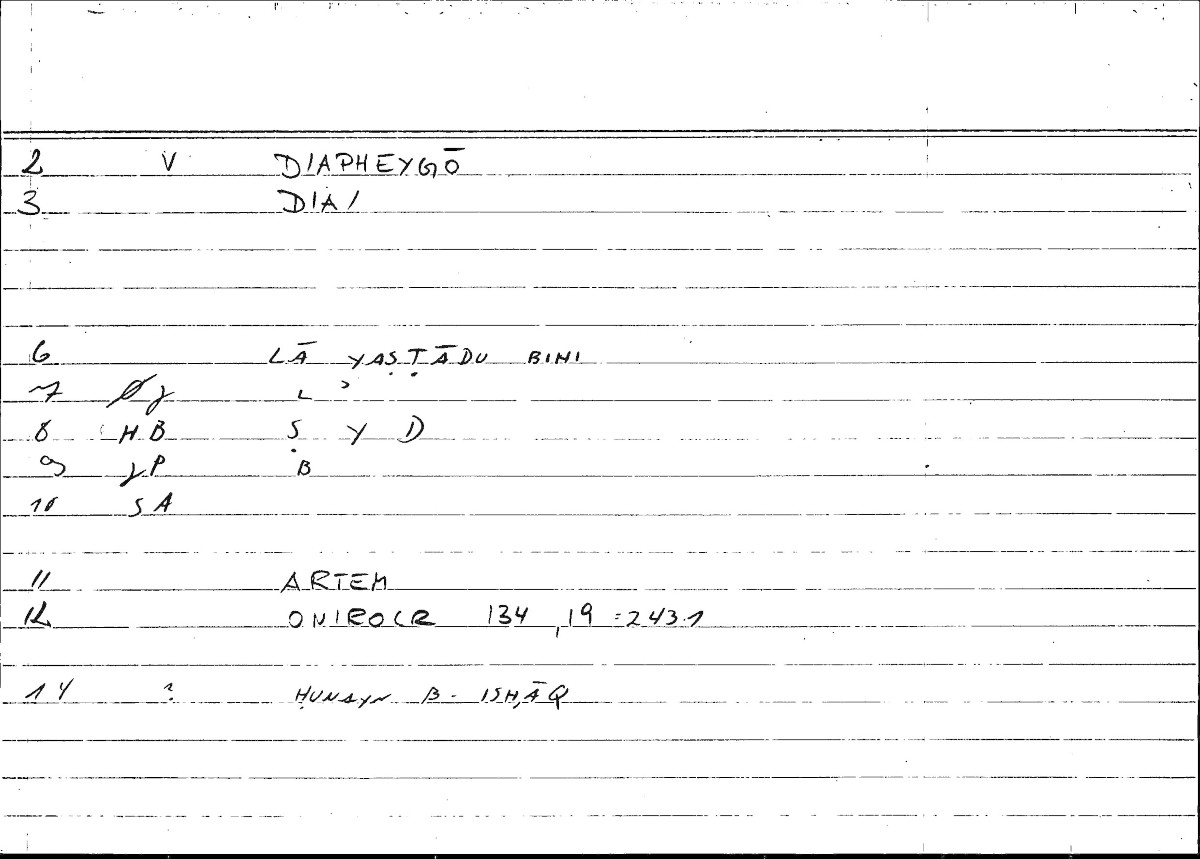 2 V DIAPHEYGŌ
3 DIA/
6 LĀ YAṢṬĀDU BIHI
7 L ʾ
8 HB Ṣ Y D
9 γP B
10 SA
11 ARTEM
12 ONIROCR 134,19 = 243.1
14 ? ḤUNAYN B. ISḤĀQ